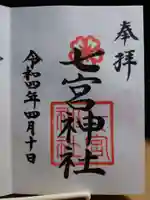 奉拝
七宮神社
令和四年四月十日